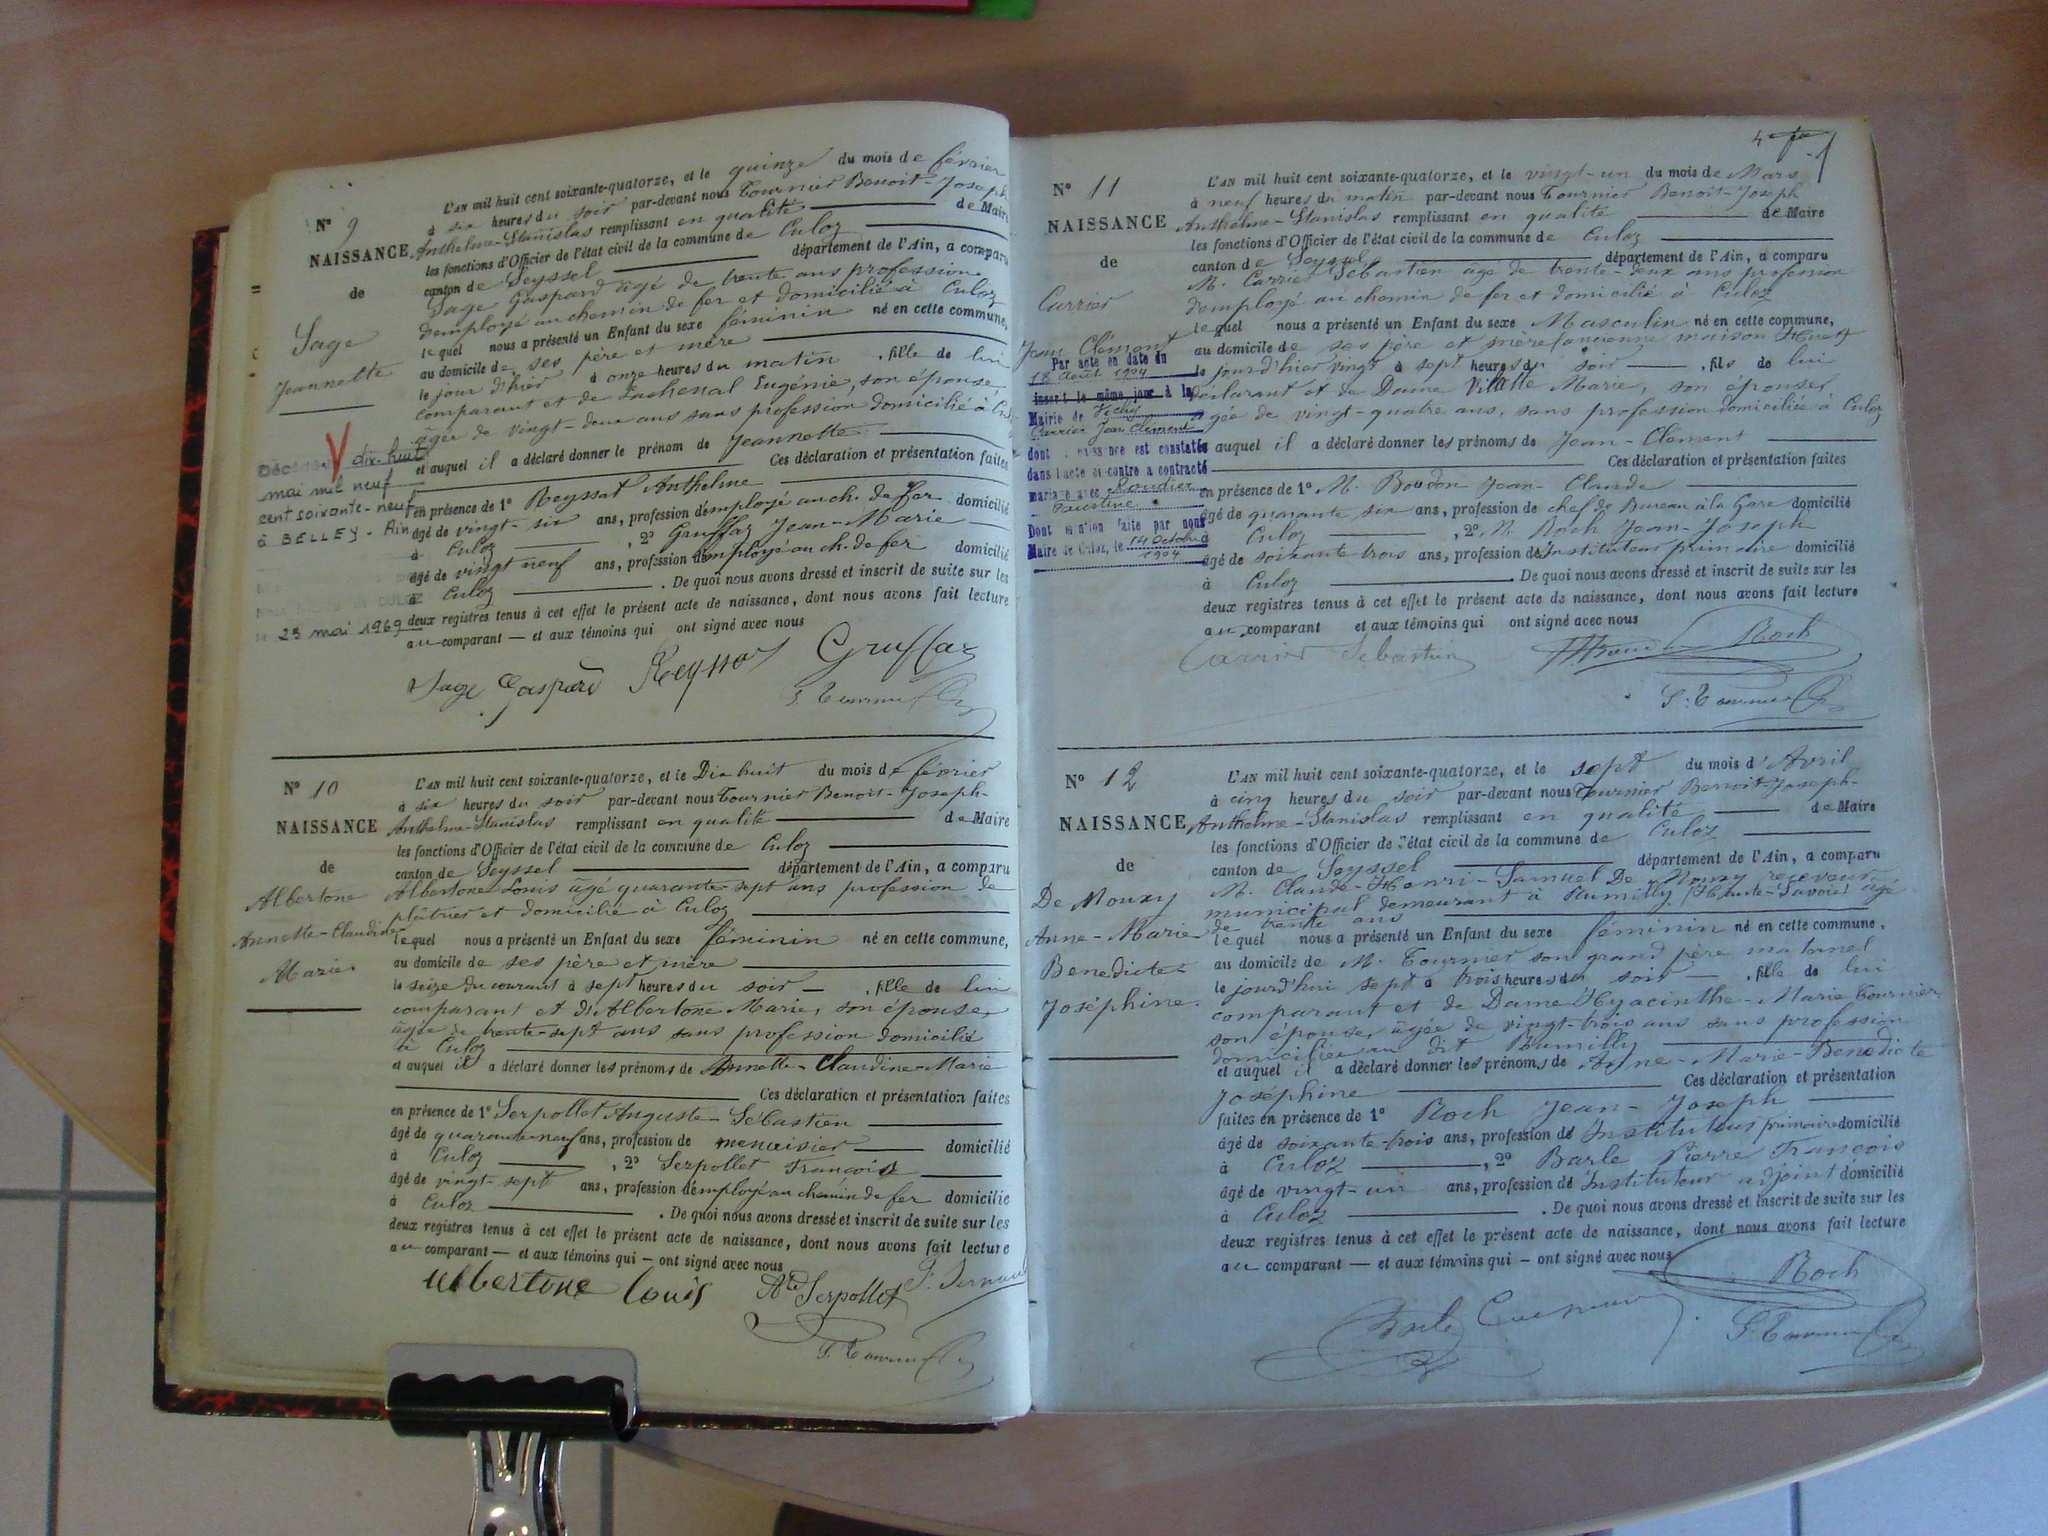 N° 9
NAISSANCE
de
Sage
Jeannette
dix-huit
mai mil neuf
cent soixante-neuf
à BELLEY - Ain
23 mai 1969
L'AN mil huit cent soixante-quatorze, et le quinze du mois de février
à six heures du soir par-devant nous Tournier Benoit-Joseph
Anthelme-Stanislas remplissant en qualité de Maire
les fonctions d'Officier de l'état civil de la commune de Culoz
canton de Seyssel département de l'Ain, a comparu
Sage Gaspard âgé de trente ans profession
d'employé au chemin de fer et domicilié à Culoz
lequel nous a présenté un Enfant du sexe féminin né en cette commune,
au domicile de ses père et mère
le jour d'hier à onze heures du matin, fille de lui
comparant et de Lachenal Eugénie, son épouse
âgée de vingt-deux ans sans profession domicilié à
et auquel il a déclaré donner le prénom de Jeannette
Ces déclaration et présentation faites
en présence de 1° Reyssat Anthelme
âgé de vingt-six ans, profession d'employé au ch. de fer domicilié
à Culoz, 2° Gruffaz Jean-Marie
âgé de vingt neuf ans, profession d'employé au ch. de fer domicilié
à Culoz. De quoi nous avons dressé et inscrit de suite sur les
deux registres tenus à cet effet le présent acte de naissance, dont nous avons fait lecture
au comparant — et aux témoins qui ont signé avec nous
Sage Gaspard Gruffaz
N° 10
NAISSANCE
de
Albertone
Annette-Claudine
Marie
L'AN mil huit cent soixante-quatorze, et le Dix huit du mois de février
à six heures du soir par-devant nous Tournier Benoit-Joseph-
Anthelme-Stanislas remplissant en qualité de Maire
les fonctions d'Officier de l'état civil de la commune de Culoz
canton de Seyssel département de l'Ain, a comparu
Albertone Louis âgé quarante-sept ans profession de
plâtrier et domicilié à Culoz
lequel nous a présenté un Enfant du sexe féminin né en cette commune,
au domicile de ses père et mère
le seize du courant à sept heures du soir —, fille de lui
comparant et d'Albertone Marie, son épouse
âgée de trente-sept ans sans profession domicilié
à Culoz
et auquel il a déclaré donner les prénoms de Annette-Claudine-Marie
Ces déclaration et présentation faites
en présence de 1° Serpollet Auguste-Sébastien
âgé de quarante-neuf ans, profession de menuisier domicilié
à Culoz, 2° Serpollet François
âgé de vingt-sept ans, profession d'employé au chemin de fer domicilié
à Culoz. De quoi nous avons dressé et inscrit de suite sur les
deux registres tenus à cet effet le présent acte de naissance, dont nous avons fait lecture
au comparant — et aux témoins qui — ont signé avec nous
Albertone Louis Serpollet
N° 11
NAISSANCE
de
Carrier
Jean Clément
Par acte en date du
18 Août 1904
inscrit le même jour à la
Mairie de Vichy
Carrier Jean Clément
dont la naissance est constatée
dans l'acte ci-contre a contracté
mariage avec Roudier
Faustine
Dont mention faite par nous
Maire de Culoz, le 14 Octobre
1904
L'AN mil huit cent soixante-quatorze, et le vingt-un du mois de Mars
à neuf heures du matin par-devant nous Tournier Benoit-Joseph
Anthelme-Stanislas remplissant en qualité de Maire
les fonctions d'Officier de l'état civil de la commune de Culoz
canton de Seyssel département de l'Ain, a comparu
M. Carrier Sébastien âgé de trente-deux ans profession
d'employé au chemin de fer et domicilié à Culoz
lequel nous a présenté un Enfant du sexe Masculin né en cette commune,
au domicile de ses père et mère (ancienne maison
le jour d'hier vingt à sept heures du soir —, fils de lui
déclarant et de Dame Marie, son épouse
âgée de vingt-quatre ans, sans profession domiciliée à Culoz
et auquel il a déclaré donner les prénoms de Jean-Clément
Ces déclaration et présentation faites
en présence de 1° M. Boudon Jean-Claude
âgé de quarante six ans, profession de chef de Bureau à la Gare domicilié
à Culoz, 2° M. Roch Jean-Joseph
âgé de soixante-trois ans, profession d'Instituteur primaire domicilié
à Culoz. De quoi nous avons dressé et inscrit de suite sur les
deux registres tenus à cet effet le présent acte de naissance, dont nous avons fait lecture
au comparant et aux témoins qui ont signé avec nous
Carrier Sebastien Roch
N° 12
NAISSANCE
de
De Mouxy
Anne-Marie
Benedicte
Joséphine
L'AN mil huit cent soixante-quatorze, et le sept du mois d'Avril
à cinq heures du soir par-devant nous Tournier Benoit-Joseph-
Anthelme-Stanislas remplissant en qualité de Maire
les fonctions d'Officier de l'état civil de la commune de Culoz
canton de Seyssel département de l'Ain, a comparu
M. Claude-Henri-Samuel De Mouxy receveur
municipal demeurant à Rumilly (Haute-Savoie) âgé
de trente ans
lequel nous a présenté un Enfant du sexe féminin né en cette commune,
au domicile de M. Tournier son grand père maternel
le jourd'hui sept à trois heures du soir —, fille de lui
comparant et de Dame Hyacinthe-Marie Tournier
son épouse, âgée de vingt-trois ans sans profession
domiciliée au dit Rumilly
et auquel il a déclaré donner les prénoms de Anne-Marie-Benedicte
Joséphine Ces déclaration et présentation
faites en présence de 1° Roch Jean-Joseph
âgé de soixante-trois ans, profession d'Instituteur primaire domicilié
à Culoz, 2° Barle Pierre François
âgé de vingt-un ans, profession d'Instituteur adjoint domicilié
à Culoz. De quoi nous avons dressé et inscrit de suite sur les
deux registres tenus à cet effet le présent acte de naissance, dont nous avons fait lecture
au comparant — et aux témoins qui — ont signé avec nous
Roch
Barle